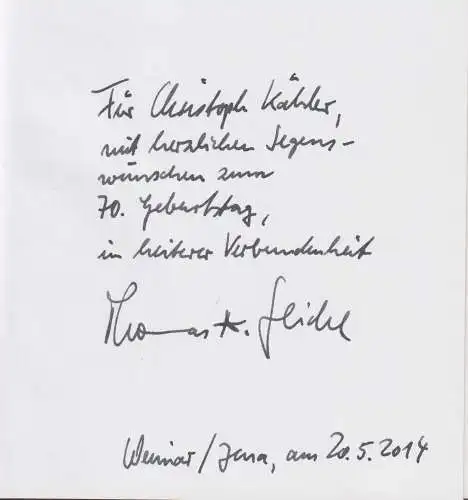 Für Christoph Kähler,
mit herzlichen Segens-
wünschen zum
70. Geburtstag,
in heiterer Verbundenheit
Thomas A. Seidel
Weimar/Jena, am 20.5.2014